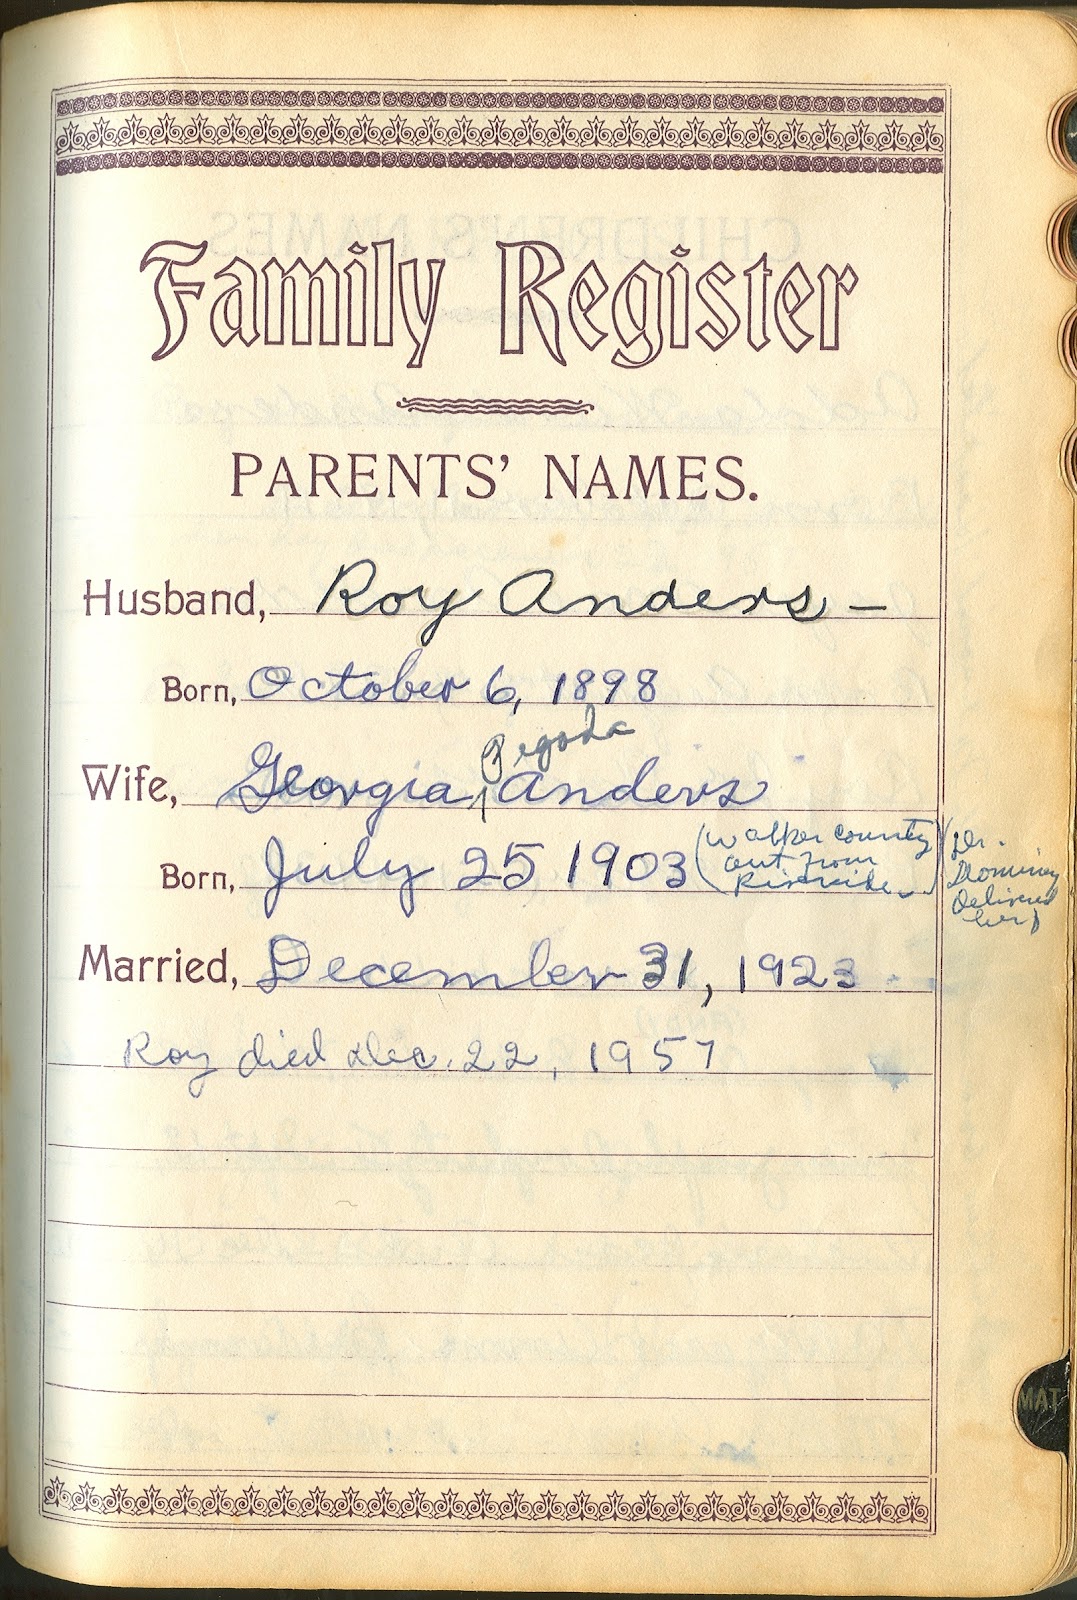 Family Register
PARENTS' NAMES.
Husband, Roy Anders –
Born, October 6, 1898
Pegoda
Wife, Georgia Anders
Born, July 25 1903 (Walker County
out from
Riverside)
(Dr.
Dominey
Delivered
her)
Married, December 31, 1923
Roy died Dec. 22, 1957
MAT